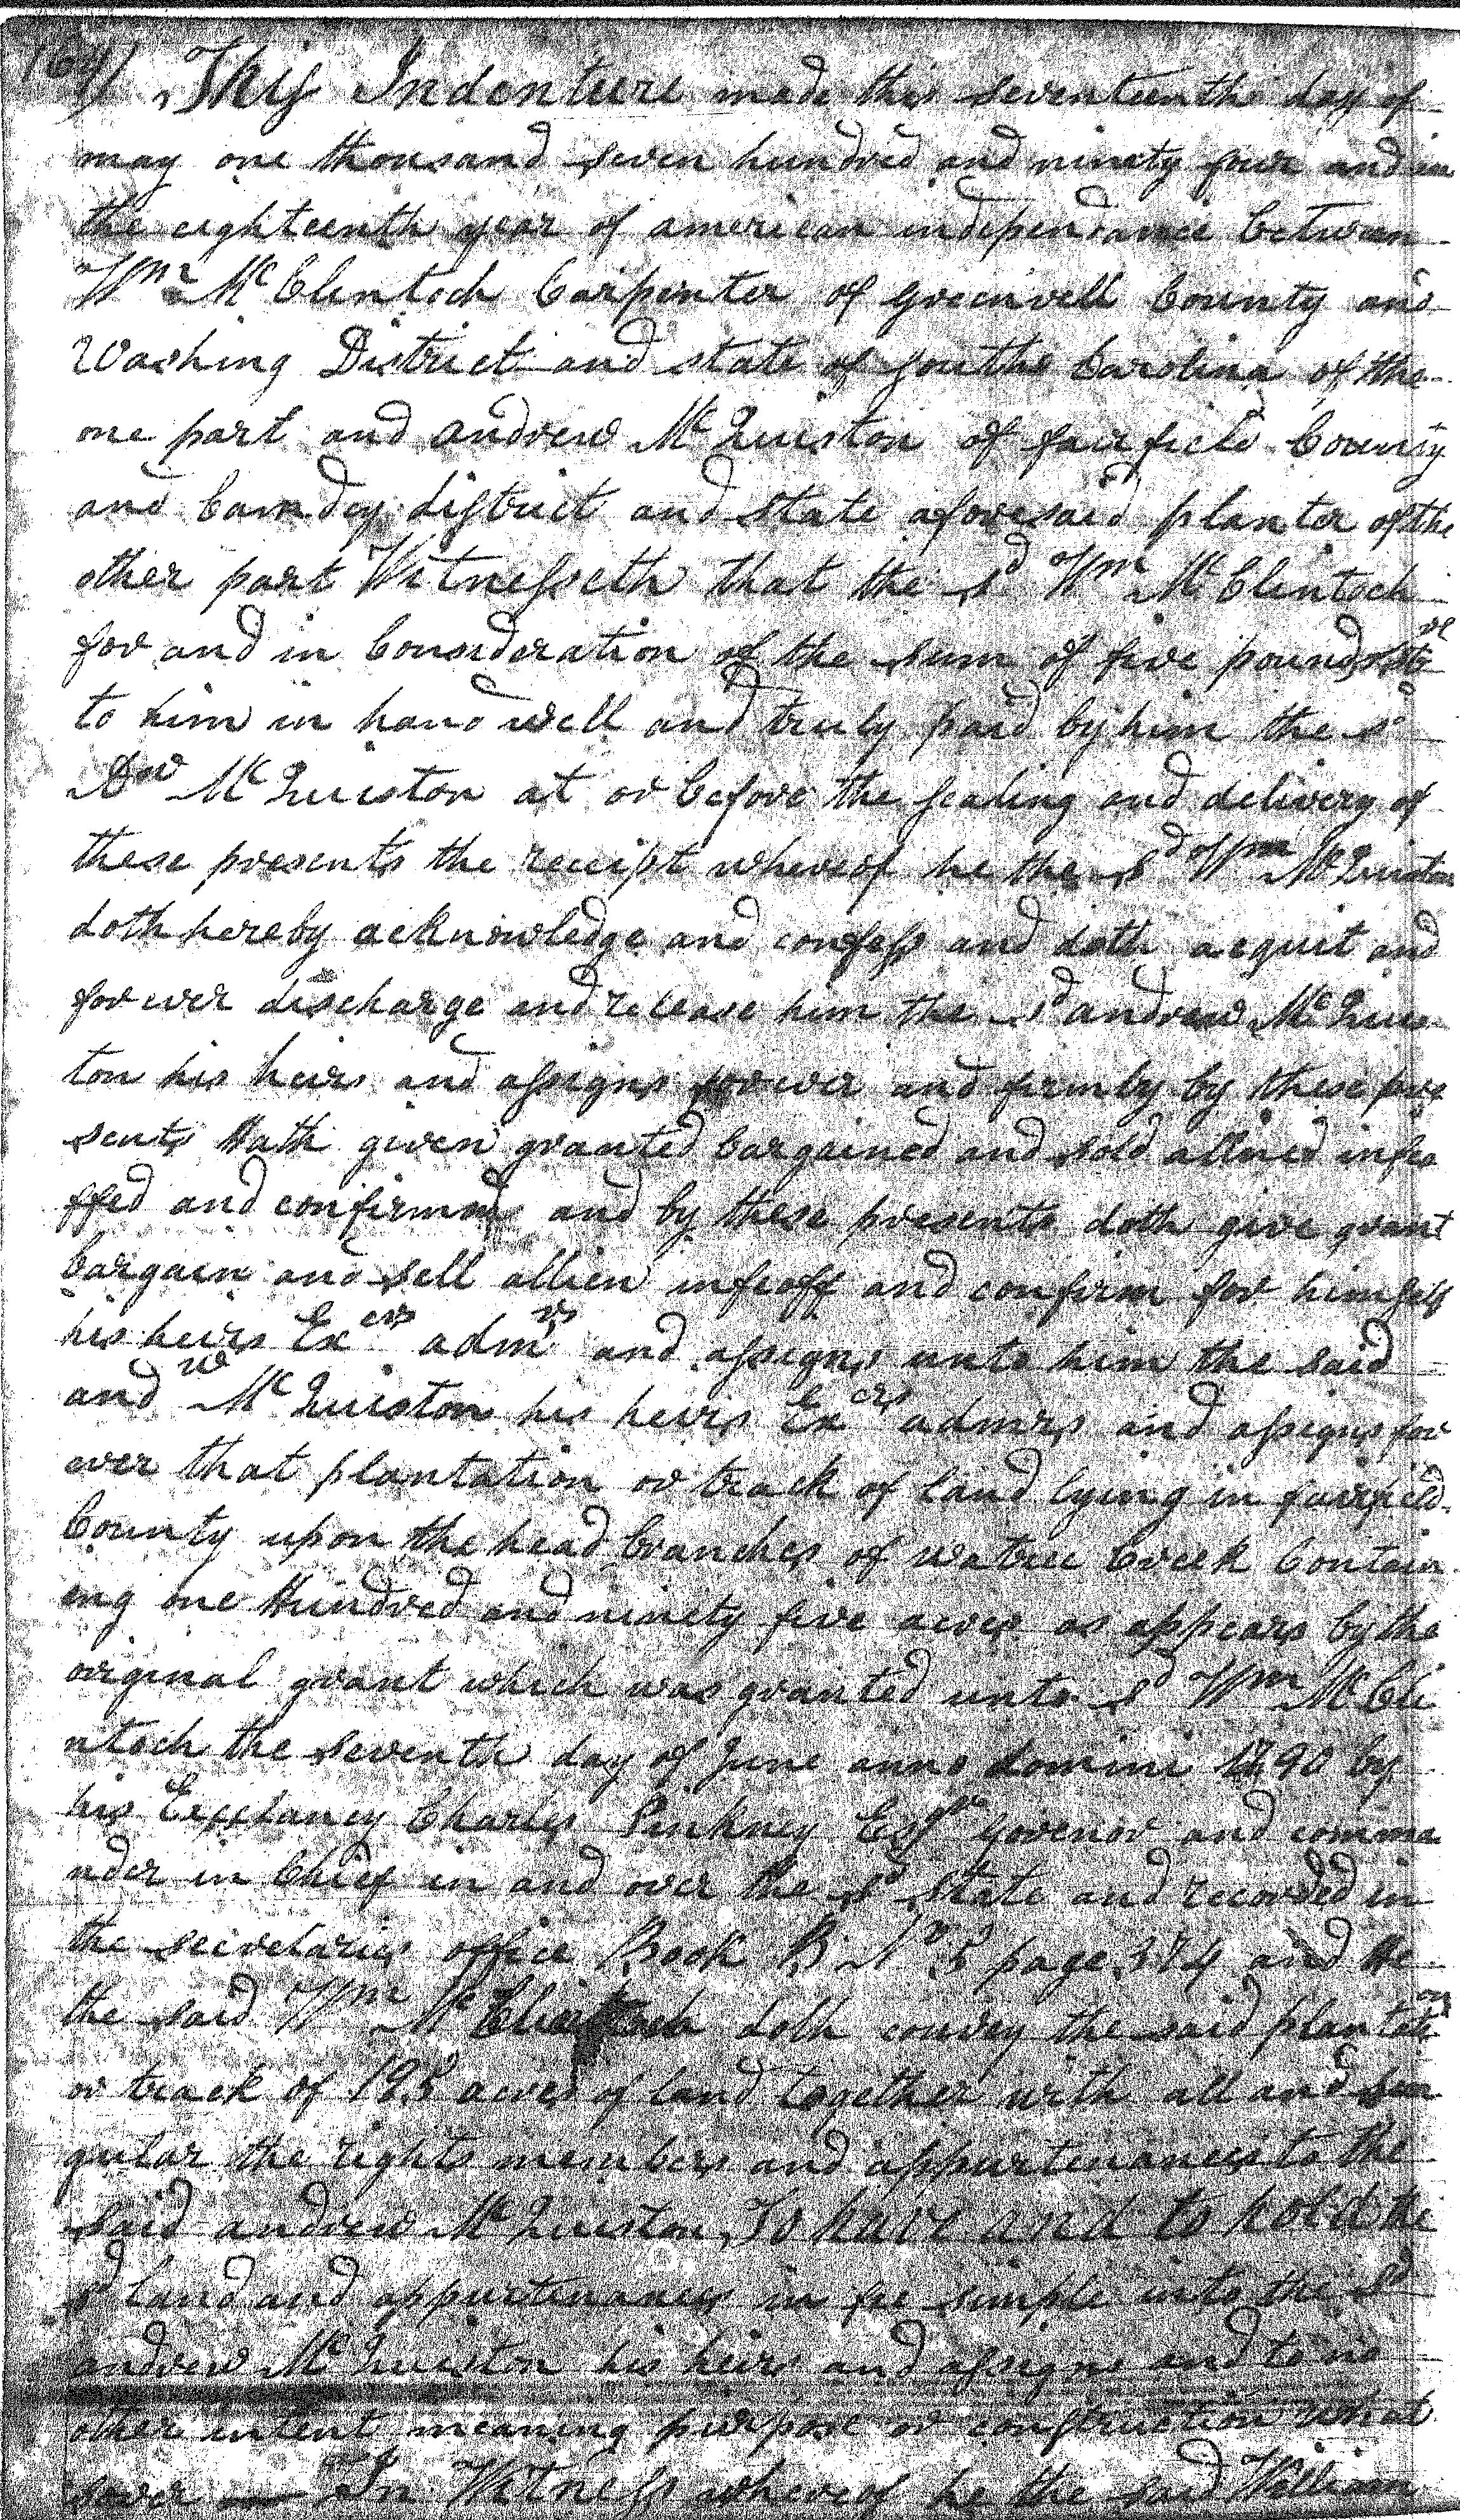 164) This Indenture made this seventeenth day of
may one thousand seven hundred and ninety four and in
the eighteenth year of american independance between
Wm McClentoch Carpenter of Greenvell County and
Washing District and state of South Carolina of the
one part and andrew McQuiston of fairfield County
and Camdey district and State aforesaid planter of the
other part Witnesseth that the sd Wm McClentoch
for and in Consideration of the sum of five pounds
to him in hand well and truly paid by him the sd
Dw McQuiston at or before the sealing and delivery of
these presents the receipt whereof he the sd Wm McQuiston
doth hereby acknowledge and confess and doth acquit and
for ever discharge and release him the sd andrew McQuis
ton his heirs and assigns forever and firmly by these pre
sents Hath given granted bargained and sold aliined infeo
ffed and confirmed and by these presents doth give grant
bargain and sell allien infeoff and confirm for himself
his heirs Exers admrs and assigns unto him the said
andw McQuiston his heirs Exers admrs and assigns for
ever that plantation or track of land lying in fairfield
County upon the head branches of watree Creek Contain
ing one Hundred and ninety five acres as appears by the
orginal grant which was granted unto sd Wm McCli
ntoch the seventh day of June anno domini 1790 by
his Excelancy Charles Pinkney Esqr Govenor and comma
nder in Chief in and over the sd State and recorded in
the secretaries office Book B No 5 page 374 and He
the said Wm McClintoch doth convey the said plantation
or track of 195 acres of land together with all and sin
gular the rights members and appurtenances to the
said andrew McQuiston, To have and to hold the
sd land and appurtenances in fee simple unto the sd
andrew McQuiston his heirs and assigns and to no
other intent meaning purpose or construction what
sover — In Witness whereof he the said William